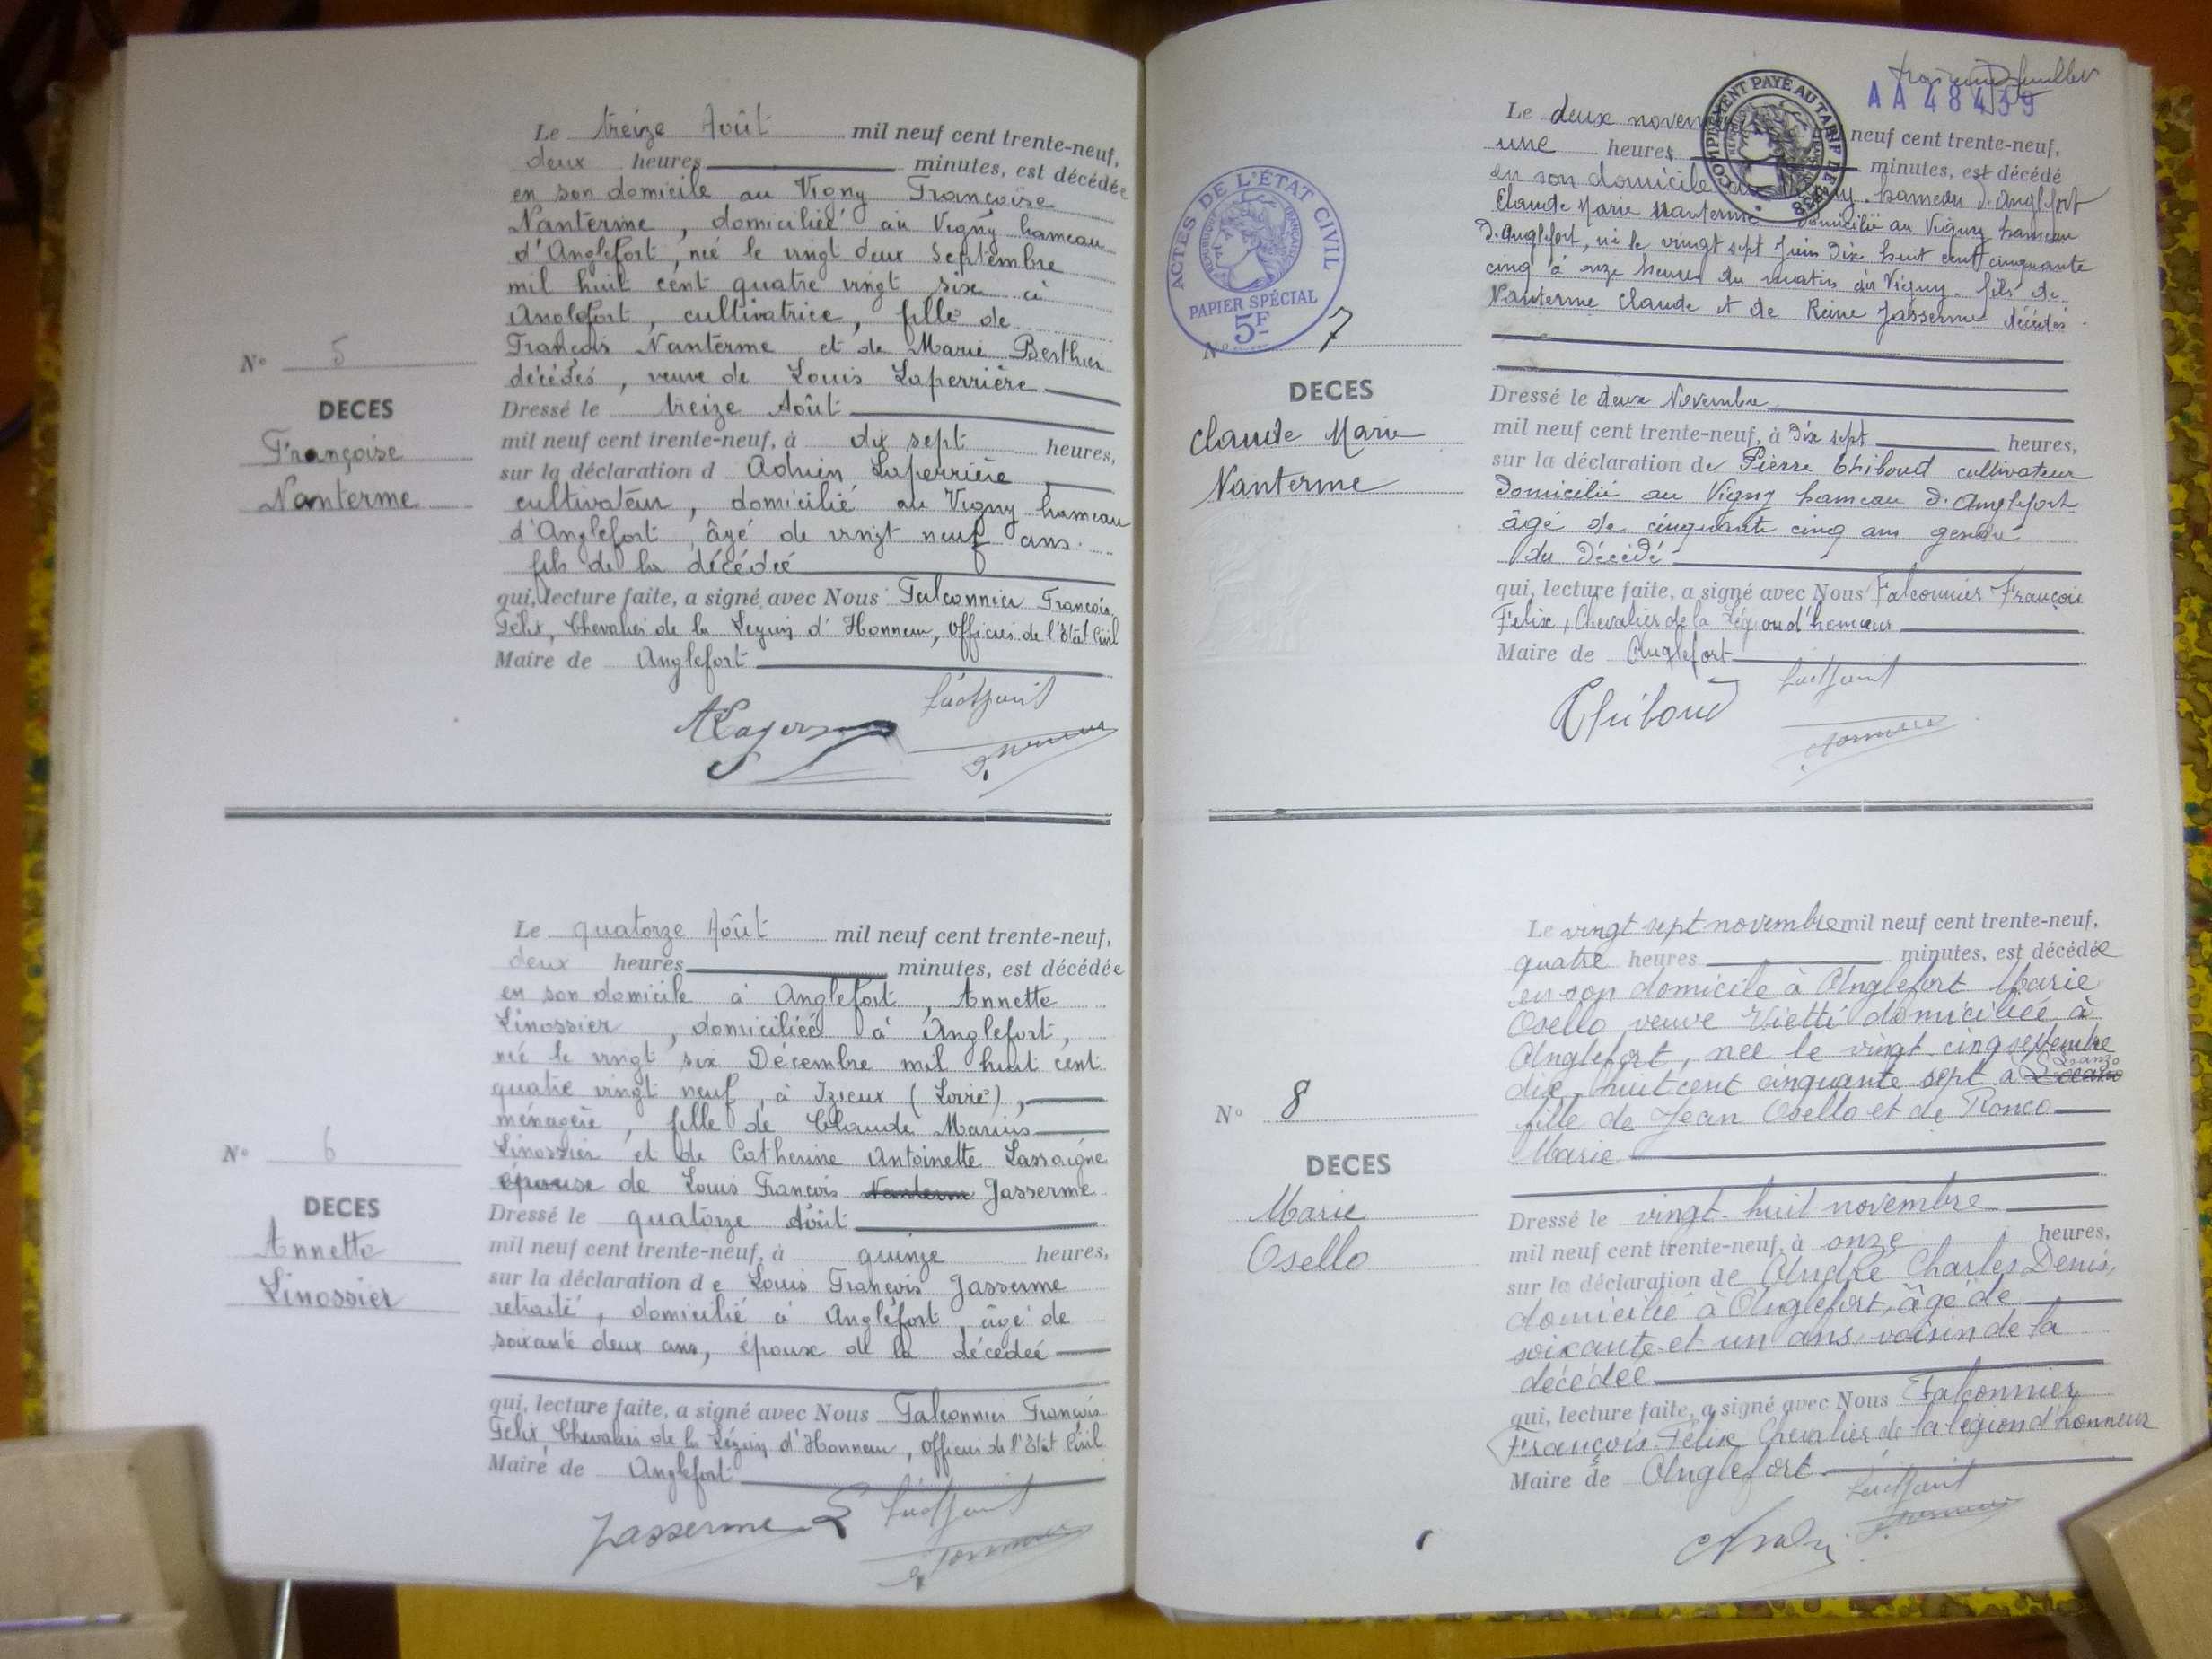 Le treize Août mil neuf cent trente-neuf,
deux heures minutes, est décédée
en son domicile au Vigny Françoise
Nanterme, domiciliée au Vigny hameau
d'Anglefort, née le vingt deux Septembre
mil huit cent quatre vingt six à
Anglefort, cultivatrice, fille de
François Nanterme et de Marie Berthier
décédés, veuve de Louis Laperrière
N° 5
DECES
Françoise
Nanterme
Dressé le treize Août
mil neuf cent trente-neuf, à dix sept heures,
sur la déclaration d Adrien Laperrière,
cultivateur, domicilié au Vigny hameau
d'Anglefort, âgé de vingt neuf ans.
fils de la décédée
qui, lecture faite, a signé avec Nous Falconnier François
Félix, Chevalier de la Légion d'Honneur, Officier de l'Etat Civil
Maire de Anglefort
L'adjoint
Le quatorze Août mil neuf cent trente-neuf,
deux heures minutes, est décédée
en son domicile à Anglefort, Annette
Linossier, domiciliée à Anglefort,
née le vingt six Décembre mil huit cent
quatre vingt neuf, à Izieux (Loire),
ménagère, fille de Claude Marius
Linossier et de Catherine Antoinette Lassaigne
épouse de Louis François Nanterme Jasserme
N° 6
DECES
Annette
Linossier
Dressé le quatorze Août
mil neuf cent trente-neuf, à quinze heures,
sur la déclaration de Louis François Jasserme
retraité, domicilié à Anglefort, âgé de
soixante deux ans, époux de la décédée
qui, lecture faite, a signé avec Nous Falconnier François
Félix Chevalier de la Légion d'Honneur, Officier de l'Etat Civil
Maire de Anglefort
L'adjoint
Jasserme L
AA 48439
COMPLEMENT PAYÉ AU TARIF DE 1938
ACTES DE L'ÉTAT CIVIL
RÉPUBLIQUE FRANÇAISE
PAPIER SPÉCIAL
5F
Le deux novem neuf cent trente-neuf,
une heures minutes, est décédé
en son domicile au Vigny hameau d'Anglefort
Claude Marie Nanterme domicilié au Vigny hameau
d'Anglefort, né le vingt sept Juin dix huit cent cinquante
cinq à onze heures du matin au Vigny. fils de
Nanterme Claude et de Reine Jasserme décédés.
N° 7
DECES
Claude Marie
Nanterme
Dressé le deux Novembre
mil neuf cent trente-neuf, à dix sept heures,
sur la déclaration de Pierre Thiboud cultivateur
domicilié au Vigny hameau d'Anglefort
âgé de cinquante cinq ans gendre
du décédé
qui, lecture faite, a signé avec Nous Falconnier François
Felix, Chevalier de la Légion d'honneur
Maire de Anglefort
L'adjoint
Thiboud
Le vingt sept novembre mil neuf cent trente-neuf,
quatre heures minutes, est décédée
en son domicile à Anglefort Marie
Osello veuve Vietti domiciliée à
Anglefort, née le vingt cinq septembre
Lanzo
dix huit cent cinquante sept à
fille de Jean Osello et de Ronco
Marie
N° 8
DECES
Marie
Osello
Dressé le vingt-huit novembre
mil neuf cent trente-neuf, à onze heures,
sur la déclaration de André Charles Denis,
domicilié à Anglefort, âgé de
soixante et un ans voisin de la
décédée
qui, lecture faite, a signé avec Nous Falconnier
François Félix Chevalier de la légion d'honneur
Maire de Anglefort
L'adjoint